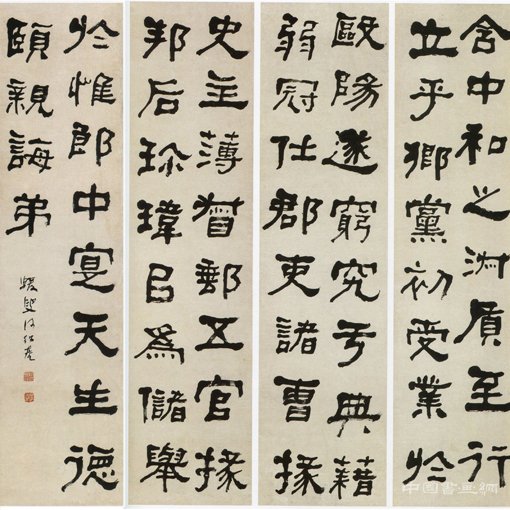 含中和之淑質至行
立乎鄉黨初受業於
歐陽遂窮究于典藉
弱冠仕郡吏諸曹掾
史主薄督郵五官掾
邦后珍瑋㠯為儲舉
於惟郎中寔天生德
頤親誨弟
蝯叟何紹基
中國書画網